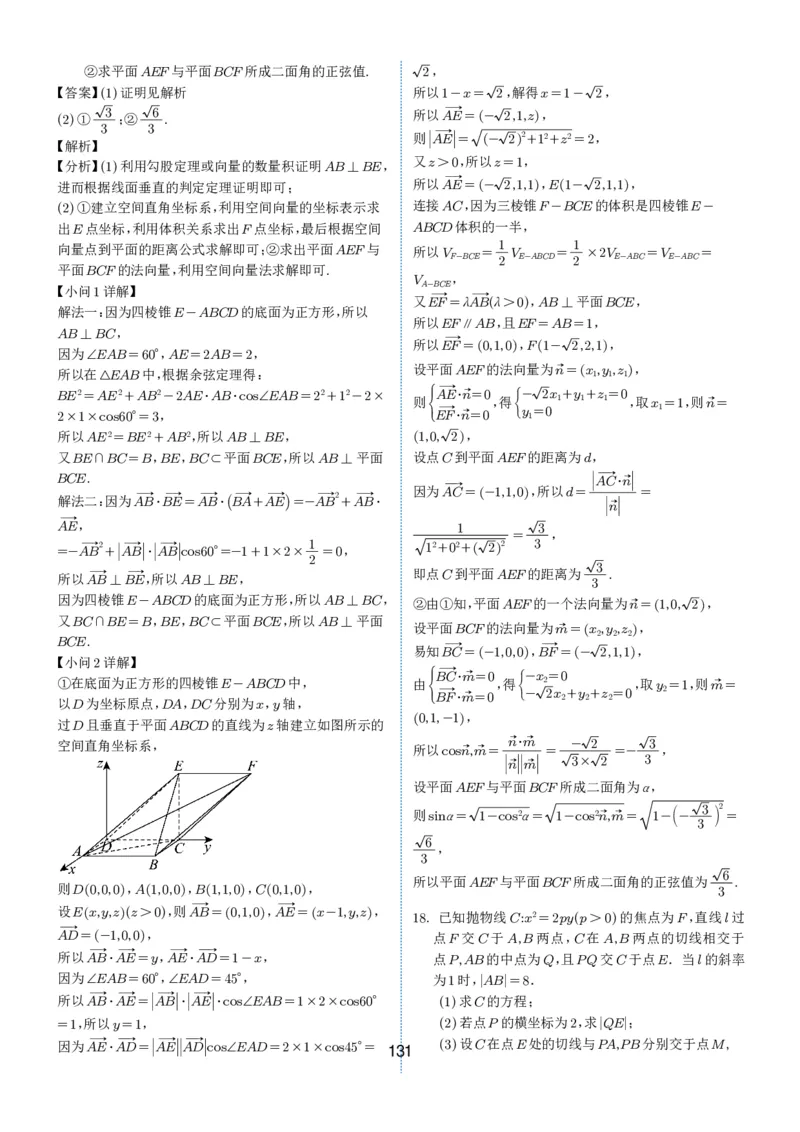 ②求平面AEF与平面BCF所成二面角的正弦值.
【答案】(1)证明见解析
(2)①√3/3;②√6/3.
【解析】
【分析】(1)利用勾股定理或向量的数量积证明AB⊥BE,
进而根据线面垂直的判定定理证明即可;
(2)①建立空间直角坐标系,利用空间向量的坐标表示求
出E点坐标,利用体积关系求出F点坐标,最后根据空间
向量点到平面的距离公式求解即可;②求出平面AEF与
平面BCF的法向量,利用空间向量法求解即可.
【小问1详解】
解法一:因为四棱锥E-ABCD的底面为正方形,所以
AB⊥BC,
因为∠EAB=60°,AE=2AB=2,
所以在△EAB中,根据余弦定理得:
BE²=AE²+AB²-2AE·AB·cos∠EAB=2²+1²-2×
2×1×cos60°=3,
所以AE²=BE²+AB²,所以AB⊥BE,
又BE∩BC=B,BE,BC⊂平面BCE,所以AB⊥平面
BCE.
解法二:因为AB→·BE→=AB→·(BA→+AE→)=-AB→²+AB→·
AE→,
=-AB→²+|AB→|·|AB→|cos60°=-1+1×2×1/2=0,
所以AB→⊥BE→,所以AB⊥BE,
因为四棱锥E-ABCD的底面为正方形,所以AB⊥BC,
又BC∩BE=B,BE,BC⊂平面BCE,所以AB⊥平面
BCE.
【小问2详解】
①在底面为正方形的四棱锥E-ABCD中,
以D为坐标原点,DA,DC分别为x,y轴,
过D且垂直于平面ABCD的直线为z轴建立如图所示的
空间直角坐标系,
z E F
A D C y
x B
则D(0,0,0),A(1,0,0),B(1,1,0),C(0,1,0),
设E(x,y,z)(z>0),则AB→=(0,1,0),AE→=(x-1,y,z),
AD→=(-1,0,0),
所以AB→·AE→=y,AE→·AD→=1-x,
因为∠EAB=60°,∠EAD=45°,
所以AB→·AE→=|AB→|·|AE→|·cos∠EAB=1×2×cos60°
=1,所以y=1,
因为AE→·AD→=|AE→||AD→|cos∠EAD=2×1×cos45°=
√2,
所以1-x=√2,解得x=1-√2,
所以AE→=(-√2,1,z),
则|AE→|=√((-√2)²+1²+z²)=2,
又z>0,所以z=1,
所以AE→=(-√2,1,1),E(1-√2,1,1),
连接AC,因为三棱锥F-BCE的体积是四棱锥E-
ABCD体积的一半,
所以V_{F-BCE}=1/2V_{E-ABCD}=1/2×2V_{E-ABC}=V_{E-ABC}=
V_{A-BCE},
又EF→=λAB→(λ>0),AB⊥平面BCE,
所以EF∥AB,且EF=AB=1,
所以EF→=(0,1,0),F(1-√2,2,1),
设平面AEF的法向量为n→=(x₁,y₁,z₁),
则{AE→·n→=0 EF→·n→=0,得{-√2x₁+y₁+z₁=0 y₁=0,取x₁=1,则n→=
(1,0,√2),
设点C到平面AEF的距离为d,
因为AC→=(-1,1,0),所以d=|AC→·n→|/|n→|=
1/√(1²+0²+(√2)²)=√3/3,
即点C到平面AEF的距离为√3/3.
②由①知,平面AEF的一个法向量为n→=(1,0,√2),
设平面BCF的法向量为m→=(x₂,y₂,z₂),
易知BC→=(-1,0,0),BF→=(-√2,1,1),
由{BC→·m→=0 BF→·m→=0,得{-x₂=0 -√2x₂+y₂+z₂=0,取y₂=1,则m→=
(0,1,-1),
所以cosn→,m→=n→·m→/|n→||m→|=-√2/(√3×√2)=-√3/3,
设平面AEF与平面BCF所成二面角为α,
则sinα=√(1-cos²α)=√(1-cos²n→,m→)=√(1-(-√3/3)²)=
√6/3,
所以平面AEF与平面BCF所成二面角的正弦值为√6/3.
18. 已知抛物线C:x²=2py(p>0)的焦点为F,直线l过
点F交C于A,B两点,C在A,B两点的切线相交于
点P,AB的中点为Q,且PQ交C于点E. 当l的斜率
为1时,|AB|=8.
(1)求C的方程;
(2)若点P的横坐标为2,求|QE|;
(3)设C在点E处的切线与PA,PB分别交于点M,
131